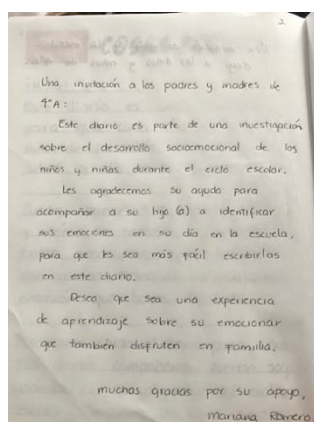 2
Una invitación a los padres y madres de
4°A:
Este diario es parte de una investigación
sobre el desarrollo socioemocional de los
niños y niñas durante el ciclo escolar.
Les agradecemos su ayuda para
acompañar a su hijo (a) a identificar
sus emociones en su día en la escuela,
para que les sea más fácil escribirlas
en este diario.
Deseo que sea una experiencia
de aprendizaje sobre su emocionar
que también disfruten en familia.
muchas gracias por su apoyo,
Mariana Romero